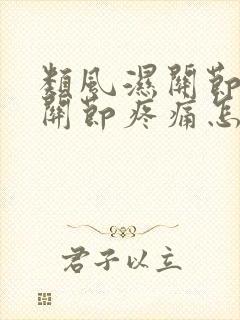 類風濕關節
關節疼痛怎
君子以立